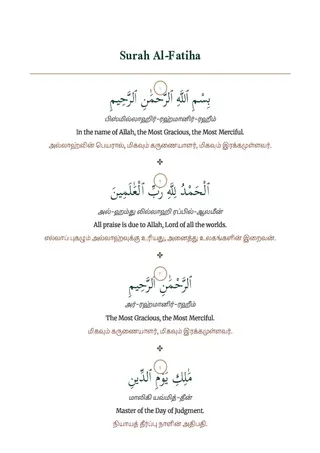 Surah Al-Fatiha
بِسْمِ ٱللَّهِ ٱلرَّحْمَٰنِ ٱلرَّحِيمِ
பிஸ்மில்லாஹிர்-ரஹ்மானிர்-ரஹீம்
In the name of Allah, the Most Gracious, the Most Merciful.
அல்லாஹ்வின் பெயரால், மிகவும் கருணையாளர், மிகவும் இரக்கமுள்ளவர்.
ٱلْحَمْدُ لِلَّهِ رَبِّ ٱلْعَٰلَمِينَ
அல்-ஹம்து லில்லாஹி ரப்பில்-ஆலமீன்
All praise is due to Allah, Lord of all the worlds.
எல்லாப் புகழும் அல்லாஹ்வுக்கு உரியது, அனைத்து உலகங்களின் இறைவன்.
ٱلرَّحْمَٰنِ ٱلرَّحِيمِ
அர்-ரஹ்மானிர்-ரஹீம்
The Most Gracious, the Most Merciful.
மிகவும் கருணையாளர், மிகவும் இரக்கமுள்ளவர்.
مَٰلِكِ يَوْمِ ٱلدِّينِ
மாலிகி யவ்மித்-தீன்
Master of the Day of Judgment.
நியாயத் தீர்ப்பு நாளின் அதிபதி.